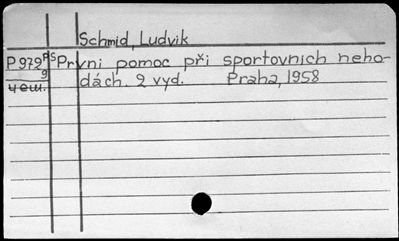 Schmid, Ludvik
P 979 PS První pomoc při sportovních neho-
9 dách. 2 vyd. Praha, 1958